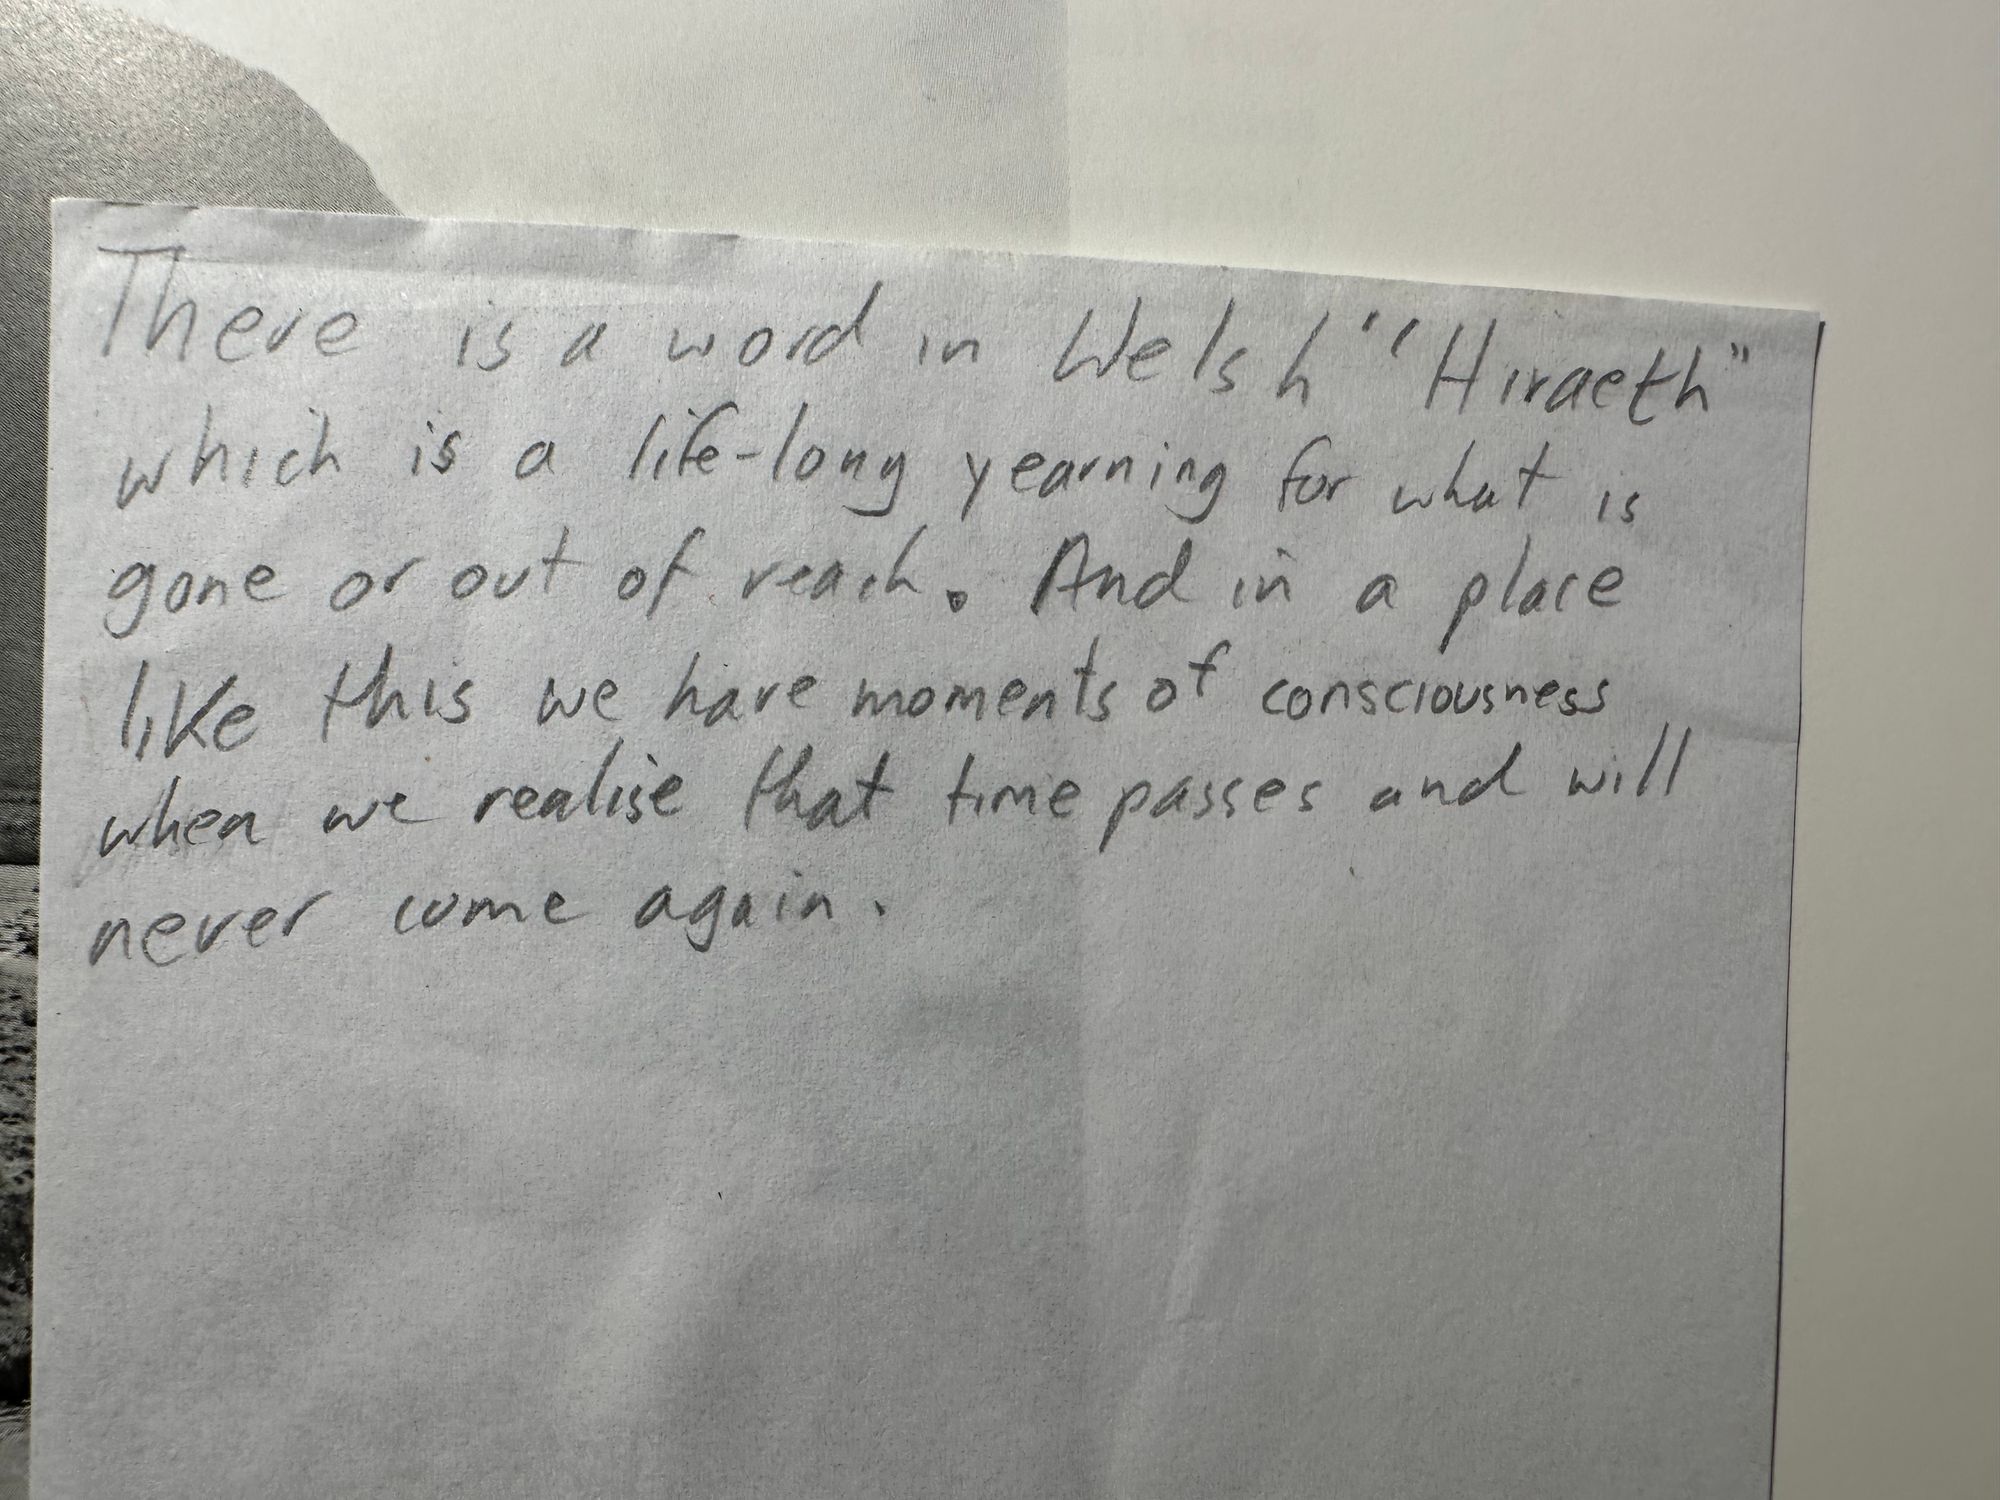 There is a word in Welsh "Hiraeth"
which is a life-long yearning for what is
gone or out of reach. And in a place
like this we have moments of consciousness
when we realise that time passes and will
never come again.